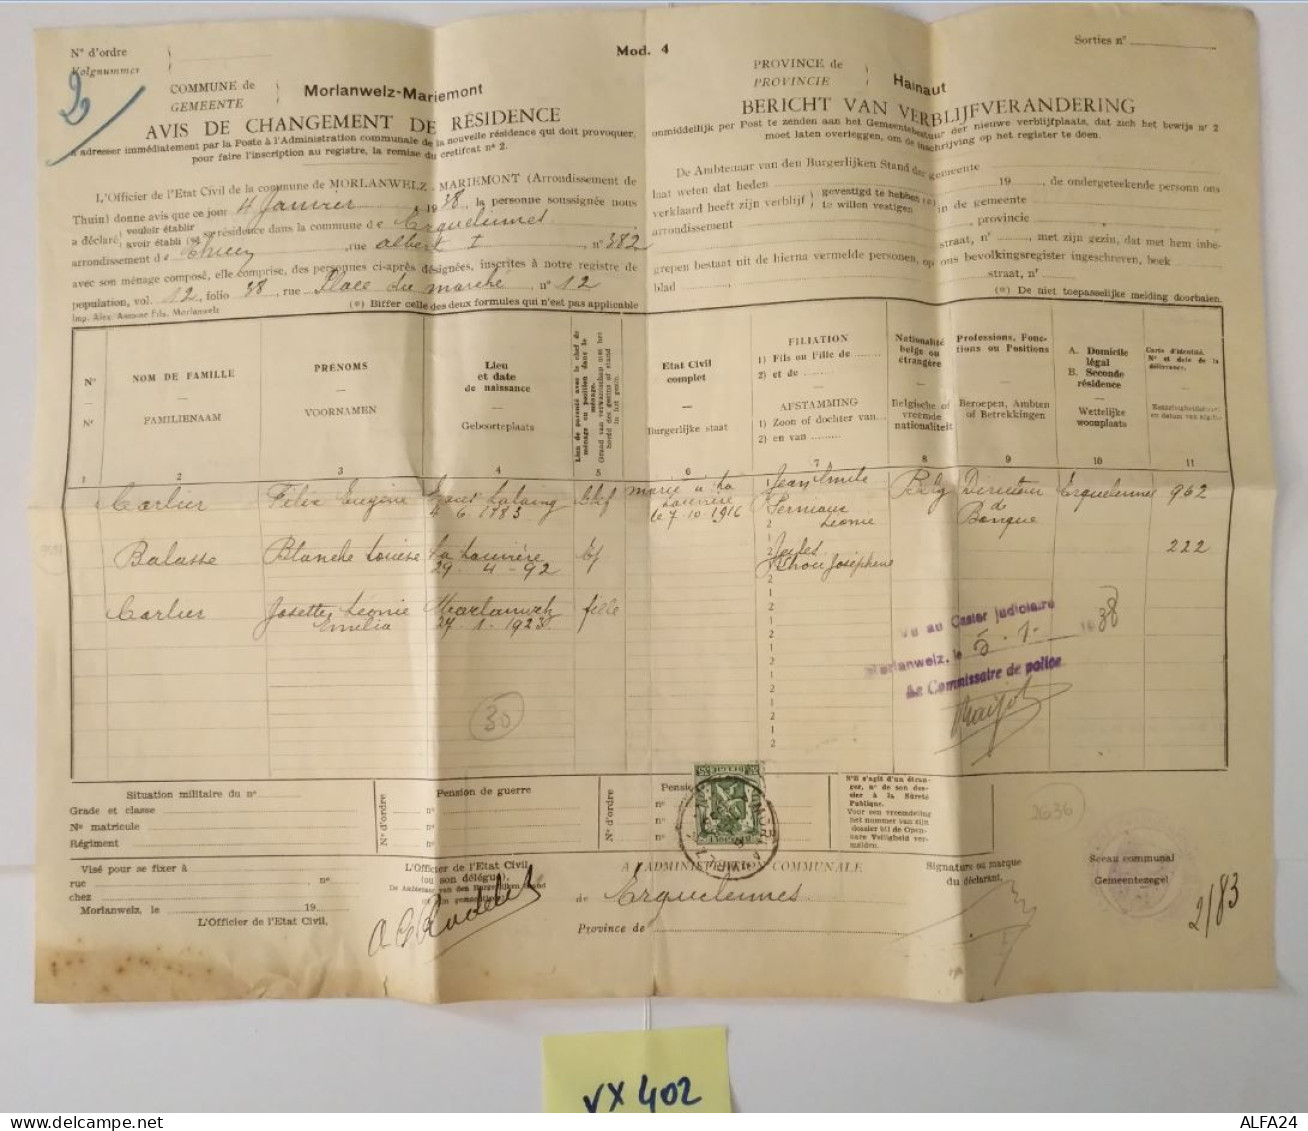 N° d'ordre
Volgnummer
Mod. 4
Sorties n°
COMMUNE de
GEMEENTE
Morlanwelz-Mariemont
PROVINCE de
PROVINCIE
Hainaut
AVIS DE CHANGEMENT DE RÉSIDENCE
à adresser immédiatement par la Poste à l'Administration communale de la nouvelle résidence qui doit provoquer,
pour faire l'inscription au registre, la remise du certificat n° 2.
BERICHT VAN VERBLIJFVERANDERING
onmiddellijk per Post te zenden aan het Gemeentebestuur der nieuwe verblijfplaats, dat zich het bewijs n° 2
moet laten overleggen, om de inschrijving op het register te doen.
L'Officier de l'Etat Civil de la commune de MORLANWELZ-MARIEMONT (Arrondissement de
Thuin) donne avis que ce jour 4 Janvier 1938, la personne soussignée nous
a déclaré vouloir établir
avoir établi (*) sa résidence dans la commune de Erquelinnes
arrondissement de Thuin, rue albert I, n° 382
avec son ménage composé, elle comprise, des personnes ci-après désignées, inscrites à notre registre de
population, vol. 12, folio 38, rue Place du marché, n° 12
Imp. Alex. Antoine Fils, Morlanwelz
(*) Biffer celle des deux formules qui n'est pas applicable
De Ambtenaar van den Burgerlijken Stand der gemeente
laat weten dat heden 19 , de ondergeteekende personn ons
verklaard heeft zijn verblijf gevestigd te hebben (*)
te willen vestigen in de gemeente
arrondissement , provincie
straat, n° , met zijn gezin, dat met hem inbe-
grepen bestaat uit de hierna vermelde personen, op ons bevolkingsregister ingeschreven, boek
blad , straat, n°
(*) De niet toepasselijke melding doorhalen.
N°
N°
NOM DE FAMILLE
FAMILIENAAM
PRÉNOMS
VOORNAMEN
Lieu
et date
de naissance
Geboorteplaats
Lien de parenté avec le chef de
ménage ou position dans le
ménage.
Etat Civil
complet
Burgerlijke staat
FILIATION
1) Fils ou Fille de
2) et de
AFSTAMMING
1) Zoon of dochter van
2) en van
Nationalité
belge ou
étrangère
Belgische of
vreemde
nationaliteit
Professions, Fonc-
tions ou Positions
Beroepen, Ambten
of Betrekkingen
A. Domicile
légal
B. Seconde
résidence
Wettelijke
woonplaats
Carte d'identité.
N° et date de la
délivrance.
1 2 3 4 5 6 7 8 9 10 11
Carlier Félix Eugène 4 6 1883 Chef marié à La Louvière le 7-10-1916 Jean Emile Leonie Belg Directeur de Banque Erquelinnes 962
Balasse Blanche Louise La Louvière 29-4-92 Jules Joséphine 222
Carlier Josette Léonie Emilia Morlanwelz 27-1-1923 fille
Vu au Casier judiciaire
Morlanwelz, le 5-1-1938
Le Commissaire de police
30
2636
Situation militaire du n°
Grade et classe
N° matricule
Régiment
N° d'ordre
Pension de guerre
n°
n°
n°
N° d'ordre
Pension
n°
n°
n°
BELGIE
BELGIQUE
S'il s'agit d'un étran-
ger, n° de son dos-
sier à la Sûreté
Publique.
Voor een vreemdeling
het nummer van zijn
dossier bij de Open-
bare Veiligheid ver-
melden.
Visé pour se fixer à
rue , n°
chez
Morlanwelz, le 19
L'Officier de l'Etat Civil,
L'Officier de l'Etat Civil
(ou son délégué),
De Ambtenaar van den Burgerlijken Stand
A L'ADMINISTRATION COMMUNALE
de Erquelinnes
Province de
Signature ou marque
du déclarant,
Sceau communal
Gemeentezegel
2/83
VX 402
ALFA24